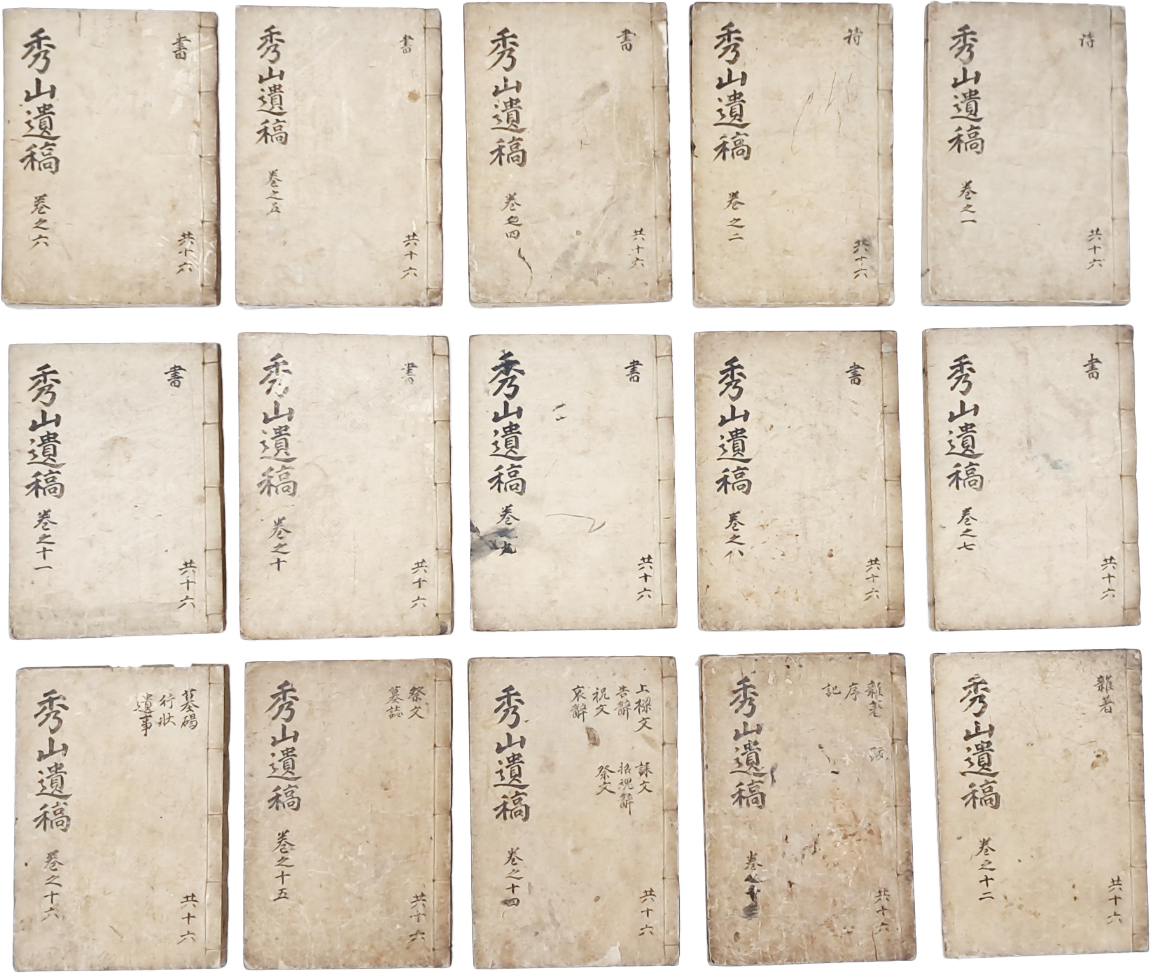 詩
共十六
秀山遺稿 卷之一
詩
共十六
秀山遺稿 卷之二
書
共十六
秀山遺稿 卷之四
書
共十六
秀山遺稿 卷之五
書
共十六
秀山遺稿 卷之六
書
共十六
秀山遺稿 卷之七
書
共十六
秀山遺稿 卷之八
書
共十六
秀山遺稿 卷之九
書
共十六
秀山遺稿 卷之十
書
共十六
秀山遺稿 卷之十一
雜著
共十六
秀山遺稿 卷之十二
雜著 跋
序
記
共十六
秀山遺稿 卷之十三
上樑文 誄文
告辭 招魂辭
祝文 祭文
哀辭
共十六
秀山遺稿 卷之十四
祭文
墓誌
共十六
秀山遺稿 卷之十五
墓碣
行狀
遺事
共十六
秀山遺稿 卷之十六